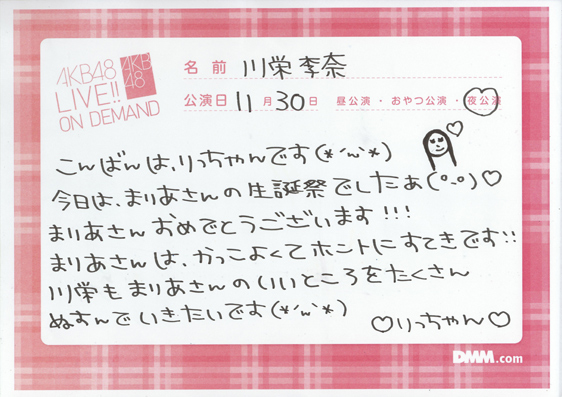 AKB48
LIVE!!
ON DEMAND
AKB
48
名前 川栄李奈
公演日 11月30日 昼公演・おやつ公演・夜公演
こんばんは、りっちゃんです(*´ω`*)
今日は、まりあさんの生誕祭でしたぁ(°◡°)♡
まりあさんおめでとうございます!!!
まりあさんは、かっこよくてホントにすてきです!!
川栄もまりあさんのいいところをたくさん
ぬすんでいきたいです(*´ω`*)
♡りっちゃん♡
DMM.com